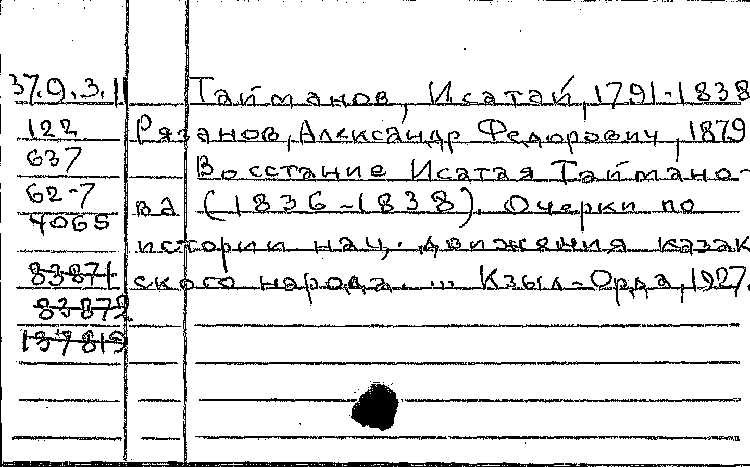 37.9.3.11 Тайманов, Исатай, 1791-1838
122 Рязанов, Александр Федорович, 1879
637 Восстание Исатая Таймано-
62-7 ва (1836-1838). Очерки по
4065 истории нац. движения казак
83871 ского народа. ... Кзыл-Орда, 1927.
83872
137819